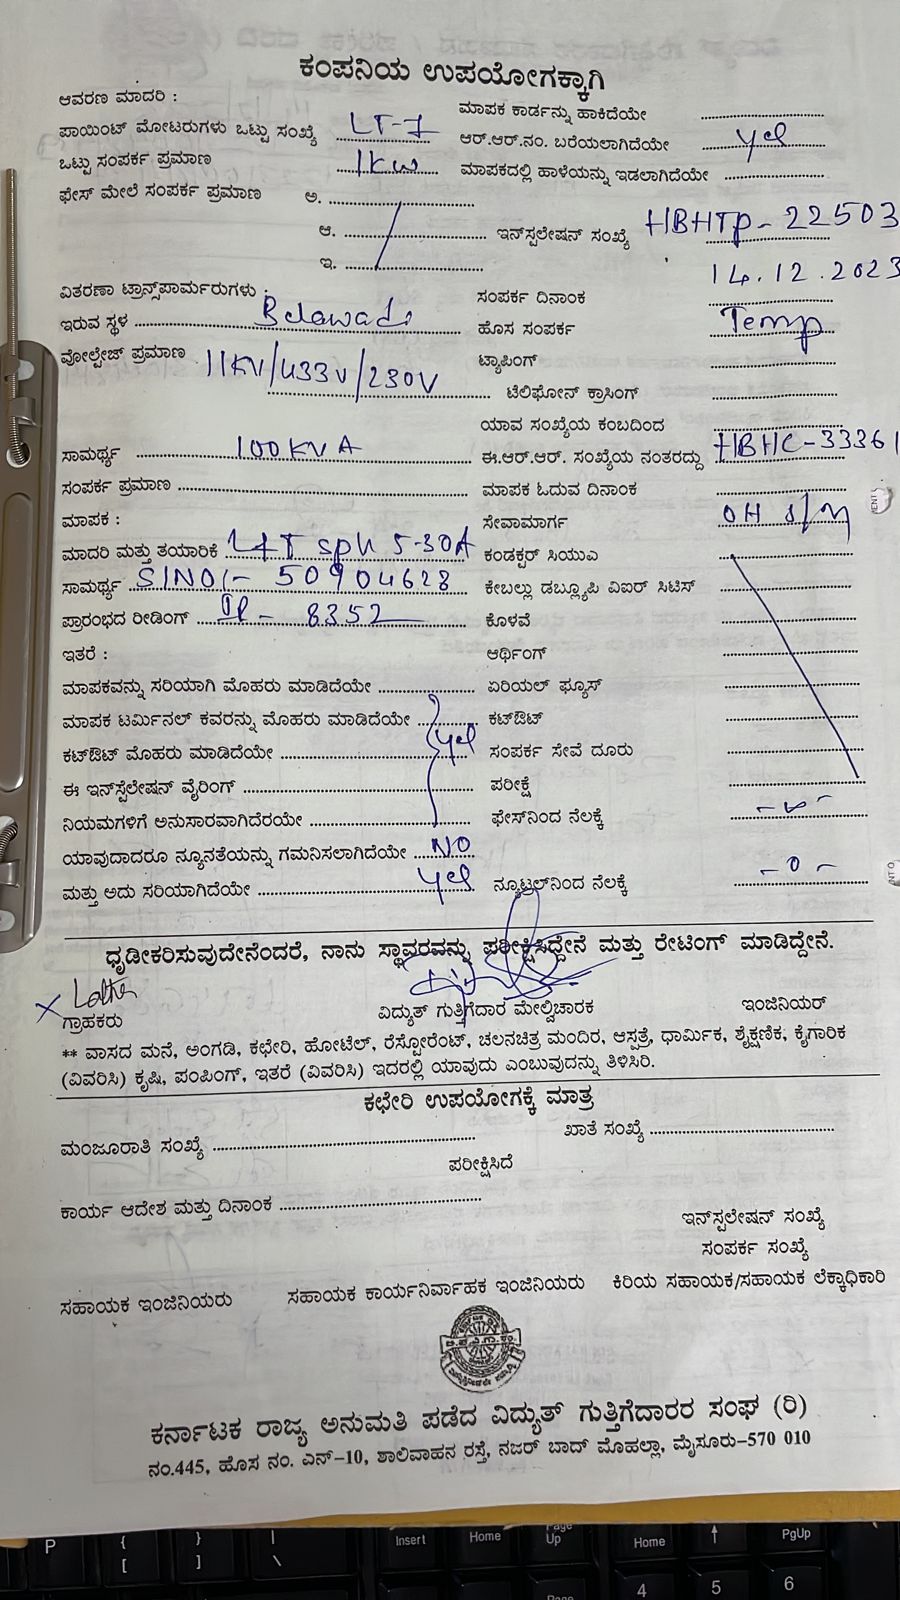 ಕಂಪನಿಯ ಉಪಯೋಗಕ್ಕಾಗಿ
ಆವರಣ ಮಾದರಿ :
ಮಾಪಕ ಕಾರ್ಡನ್ನು ಹಾಕಿದೆಯೇ
ಪಾಯಿಂಟ್ ಮೋಟರುಗಳು ಒಟ್ಟು ಸಂಖ್ಯೆ LT-7 ಆರ್.ಆರ್.ನಂ. ಬರೆಯಲಾಗಿದೆಯೇ yes
ಒಟ್ಟು ಸಂಪರ್ಕ ಪ್ರಮಾಣ 1KW ಮಾಪಕದಲ್ಲಿ ಹಾಳೆಯನ್ನು ಇಡಲಾಗಿದೆಯೇ
ಫೇಸ್ ಮೇಲೆ ಸಂಪರ್ಕ ಪ್ರಮಾಣ ಅ.
ಆ. ಇನ್‌ಸ್ಟಲೇಷನ್ ಸಂಖ್ಯೆ HBHTP-22503
ಇ. 14.12.2023
ವಿತರಣಾ ಟ್ರಾನ್ಸ್‌ಪಾರ್ಮರುಗಳು : ಸಂಪರ್ಕ ದಿನಾಂಕ
ಇರುವ ಸ್ಥಳ Belawadi ಹೊಸ ಸಂಪರ್ಕ Temp
ವೋಲ್ಟೇಜ್ ಪ್ರಮಾಣ 11KV/433V/230V ಟ್ಯಾಪಿಂಗ್
ಟೆಲಿಫೋನ್ ಕ್ರಾಸಿಂಗ್
ಯಾವ ಸಂಖ್ಯೆಯ ಕಂಬದಿಂದ
ಸಾಮರ್ಥ್ಯ 100KVA ಈ.ಆರ್.ಆರ್. ಸಂಖ್ಯೆಯ ನಂತರದ್ದು HBHC-33361
ಸಂಪರ್ಕ ಪ್ರಮಾಣ ಮಾಪಕ ಓದುವ ದಿನಾಂಕ
ಮಾಪಕ : ಸೇವಾಮಾರ್ಗ OH s/m
ಮಾದರಿ ಮತ್ತು ತಯಾರಿಕೆ L&T sph 5-30A ಕಂಡಕ್ಟರ್ ಸಿಯುಎ
ಸಾಮರ್ಥ್ಯ Sl NO:- 50904628 ಕೇಬಲ್ಲು ಡಬ್ಲ್ಯೂಪಿ ವಿಐರ್ ಸಿಟಿಸ್
ಪ್ರಾರಂಭದ ರೀಡಿಂಗ್ IR- 8352 ಕೊಳವೆ
ಇತರೆ : ಆರ್ಥಿಂಗ್
ಮಾಪಕವನ್ನು ಸರಿಯಾಗಿ ಮೊಹರು ಮಾಡಿದೆಯೇ ಏರಿಯಲ್ ಫ್ಯೂಸ್
ಮಾಪಕ ಟರ್ಮಿನಲ್ ಕವರನ್ನು ಮೊಹರು ಮಾಡಿದೆಯೇ yes ಕಟ್‌ಔಟ್
ಕಟ್‌ಔಟ್ ಮೊಹರು ಮಾಡಿದೆಯೇ ಸಂಪರ್ಕ ಸೇವೆ ದೂರು
ಈ ಇನ್‌ಸ್ಟೆಲೇಷನ್ ವೈರಿಂಗ್ ಪರೀಕ್ಷೆ
ನಿಯಮಗಳಿಗೆ ಅನುಸಾರವಾಗಿದೆರಯೇ ಫೇಸ್‌ನಿಂದ ನೆಲಕ್ಕೆ
ಯಾವುದಾದರೂ ನ್ಯೂನತೆಯನ್ನು ಗಮನಿಸಲಾಗಿದೆಯೇ NO
ಮತ್ತು ಅದು ಸರಿಯಾಗಿದೆಯೇ yes ನ್ಯೂಟ್ರಲ್‌ನಿಂದ ನೆಲಕ್ಕೆ -0-
ಧೃಡೀಕರಿಸುವುದೇನೆಂದರೆ, ನಾನು ಸ್ಥಾವರವನ್ನು ಪರೀಕ್ಷಿಸಿದ್ದೇನೆ ಮತ್ತು ರೇಟಿಂಗ್ ಮಾಡಿದ್ದೇನೆ.
ಗ್ರಾಹಕರು ವಿದ್ಯುತ್ ಗುತ್ತಿಗೆದಾರ ಮೇಲ್ವಿಚಾರಕ ಇಂಜಿನಿಯರ್
** ವಾಸದ ಮನೆ, ಅಂಗಡಿ, ಕಛೇರಿ, ಹೋಟೆಲ್, ರೆಸ್ಟೋರೆಂಟ್, ಚಲನಚಿತ್ರ ಮಂದಿರ, ಆಸ್ಪತ್ರೆ, ಧಾರ್ಮಿಕ, ಶೈಕ್ಷಣಿಕ, ಕೈಗಾರಿಕ
(ವಿವರಿಸಿ) ಕೃಷಿ, ಪಂಪಿಂಗ್, ಇತರೆ (ವಿವರಿಸಿ) ಇದರಲ್ಲಿ ಯಾವುದು ಎಂಬುವುದನ್ನು ತಿಳಿಸಿರಿ.
ಕಛೇರಿ ಉಪಯೋಗಕ್ಕೆ ಮಾತ್ರ
ಮಂಜೂರಾತಿ ಸಂಖ್ಯೆ ಖಾತೆ ಸಂಖ್ಯೆ
ಪರೀಕ್ಷಿಸಿದೆ
ಕಾರ್ಯ ಆದೇಶ ಮತ್ತು ದಿನಾಂಕ
ಇನ್‌ಸ್ಟಲೇಷನ್ ಸಂಖ್ಯೆ
ಸಂಪರ್ಕ ಸಂಖ್ಯೆ
ಸಹಾಯಕ ಇಂಜಿನಿಯರು ಸಹಾಯಕ ಕಾರ್ಯನಿರ್ವಾಹಕ ಇಂಜಿನಿಯರು ಕಿರಿಯ ಸಹಾಯಕ/ಸಹಾಯಕ ಲೆಕ್ಕಾಧಿಕಾರಿ
ಕರ್ನಾಟಕ ರಾಜ್ಯ ಅನುಮತಿ ಪಡೆದ ವಿದ್ಯುತ್ ಗುತ್ತಿಗೆದಾರರ ಸಂಘ (ರಿ)
ನಂ.445, ಹೊಸ ನಂ. ಎನ್-10, ಶಾಲಿವಾಹನ ರಸ್ತೆ, ನಜರ್ ಬಾದ್ ಮೊಹಲ್ಲಾ, ಮೈಸೂರು-570 010
P { [ } ] | \ Insert Home Page Up Home ↑ PgUp
4 5 6